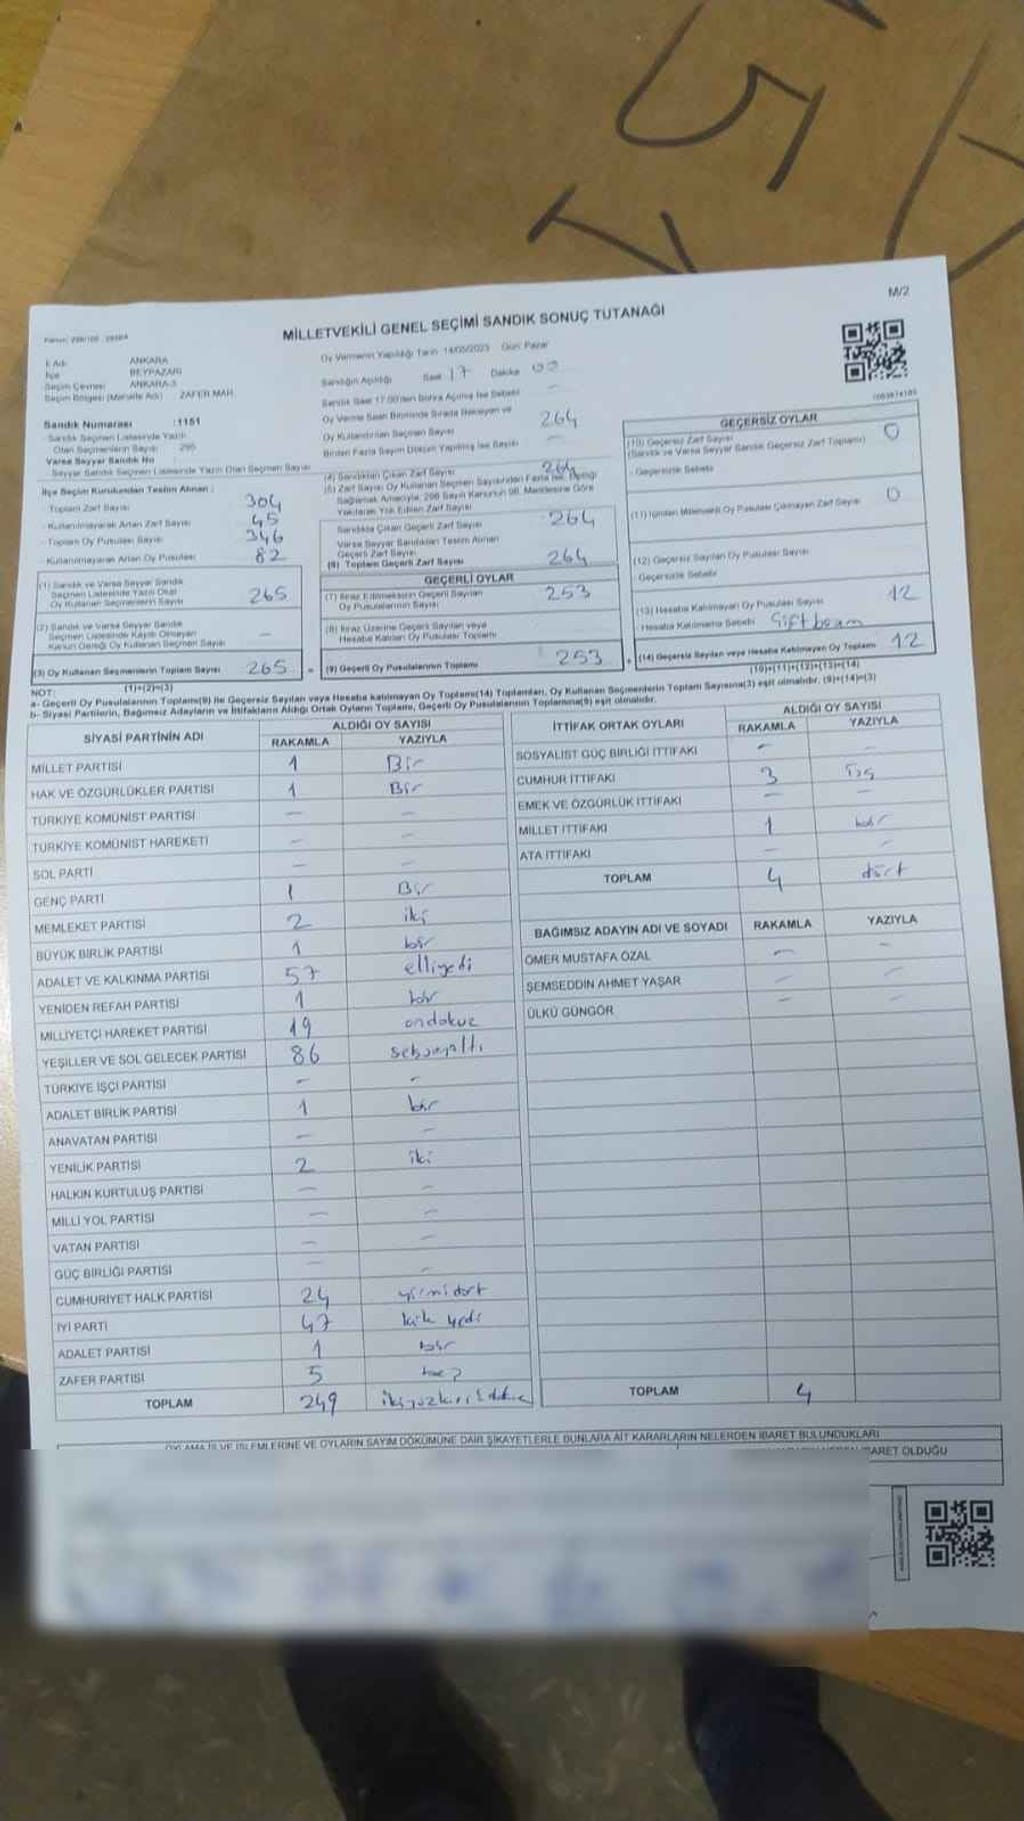 M/2
MİLLETVEKİLİ GENEL SEÇİMİ SANDIK SONUÇ TUTANAĞI
İl Adı ANKARA
İlçe BEYPAZARI
Seçim Çevresi ANKARA-3
Seçim Bölgesi (Mahalle Adı) ZAFER MAH.
Sandık Numarası :1151
Sandık Seçmen Listesinde Yazılı
Olan Seçmenlerin Sayısı 295
Varsa Seyyar Sandık No
Seyyar Sandık Seçmen Listesinde Yazılı Olan Seçmen Sayısı
İlçe Seçim Kurulundan Teslim Alınan :
Toplam Zarf Sayısı 304
Kullanılmayarak Artan Zarf Sayısı 45
Toplam Oy Pusulası Sayısı 346
Kullanılmayarak Artan Oy Pusulası 82
(1) Sandık ve Varsa Seyyar Sandık
Seçmen Listesinde Yazılı Olan
Oy Kullanan Seçmenlerin Sayısı 265
(2) Sandık ve Varsa Seyyar Sandık
Seçmen Listesinde Kayıtlı Olmayan
Kanun Gereği Oy Kullanan Seçmen Sayısı –
(3) Oy Kullanan Seçmenlerin Toplam Sayısı 265 =
(1)+(2)=(3)
Oy Vermenin Yapıldığı Tarih 14/05/2023 Gün: Pazar
Sandığın Açıldığı Saat 17 Dakika 00
Sandık Saat 17:00'den Sonra Açılmış İse Sebebi –
Oy Verme Saati Bitiminde Sırada Bekleyen ve
Oy Kullandırılan Seçmen Sayısı 264
Birden Fazla Sayım Döküm Yapılmış İse Sayısı –
(4) Sandıktan Çıkan Zarf Sayısı 264
(5) Zarf Sayısı Oy Kullanan Seçmen Sayısından Fazla İse, Eşitliği
Sağlamak Amacıyla, 298 Sayılı Kanunun 98. Maddesine Göre
Yakılarak Yok Edilen Zarf Sayısı
Sandıkta Çıkan Geçerli Zarf Sayısı 264
Varsa Seyyar Sandıktan Teslim Alınan
Geçerli Zarf Sayısı
(6) Toplam Geçerli Zarf Sayısı 264
GEÇERLİ OYLAR
(7) İtiraz Edilmeksizin Geçerli Sayılan
Oy Pusulalarının Sayısı 253
(8) İtiraz Üzerine Geçerli Sayılan veya
Hesaba Katılan Oy Pusulası Toplamı
(9) Geçerli Oy Pusulalarının Toplamı 253 +
GEÇERSİZ OYLAR
(10) Geçersiz Zarf Sayısı
(Sandık ve Varsa Seyyar Sandık Geçersiz Zarf Toplamı) 0
Geçersizlik Sebebi
(11) İçinden Milletvekili Oy Pusulası Çıkmayan Zarf Sayısı 0
(12) Geçersiz Sayılan Oy Pusulası Sayısı
Geçersizlik Sebebi
(13) Hesaba Katılmayan Oy Pusulası Sayısı 12
Hesaba Katılmama Sebebi
(14) Geçersiz Sayılan veya Hesaba Katılmayan Oy Toplamı 12
(10)+(11)+(12)+(13)=(14)
NOT:
a- Geçerli Oy Pusulalarının Toplamı(9) ile Geçersiz Sayılan veya Hesaba katılmayan Oy Toplamı(14) Toplamları, Oy Kullanan Seçmenlerin Toplam Sayısına(3) eşit olmalıdır. (9)+(14)=(3)
b- Siyasi Partilerin, Bağımsız Adayların ve İttifakların Aldığı Ortak Oyların Toplamı, Geçerli Oy Pusulalarının Toplamına(9) eşit olmalıdır.
SİYASİ PARTİNİN ADI ALDIĞI OY SAYISI
RAKAMLA YAZIYLA
MİLLET PARTİSİ 1 Bir
HAK VE ÖZGÜRLÜKLER PARTİSİ 1 Bir
TÜRKİYE KOMÜNİST PARTİSİ – –
TÜRKİYE KOMÜNİST HAREKETİ – –
SOL PARTİ – –
GENÇ PARTİ 1 Bir
MEMLEKET PARTİSİ 2 iki
BÜYÜK BİRLİK PARTİSİ 1 bir
ADALET VE KALKINMA PARTİSİ 57 elliyedi
YENİDEN REFAH PARTİSİ 1 bir
MİLLİYETÇİ HAREKET PARTİSİ 19 ondokuz
YEŞİLLER VE SOL GELECEK PARTİSİ 86 seksenaltı
TÜRKİYE İŞÇİ PARTİSİ – –
ADALET BİRLİK PARTİSİ 1 bir
ANAVATAN PARTİSİ – –
YENİLİK PARTİSİ 2 iki
HALKIN KURTULUŞ PARTİSİ – –
MİLLİ YOL PARTİSİ – –
VATAN PARTİSİ – –
GÜÇ BİRLİĞİ PARTİSİ – –
CUMHURİYET HALK PARTİSİ 24 yirmidört
İYİ PARTİ 47 kırk yedi
ADALET PARTİSİ 1 bir
ZAFER PARTİSİ 5 beş
TOPLAM 249
İTTİFAK ORTAK OYLARI ALDIĞI OY SAYISI
RAKAMLA YAZIYLA
SOSYALİST GÜÇ BİRLİĞİ İTTİFAKI – –
CUMHUR İTTİFAKI 3 üç
EMEK VE ÖZGÜRLÜK İTTİFAKI – –
MİLLET İTTİFAKI 1 bir
ATA İTTİFAKI – –
TOPLAM 4 dört
BAĞIMSIZ ADAYIN ADI VE SOYADI RAKAMLA YAZIYLA
ÖMER MUSTAFA ÖZAL – –
ŞEMSEDDİN AHMET YAŞAR – –
ÜLKÜ GÜNGÖR – –
TOPLAM 4
OYLAMA İŞ VE İŞLEMLERİNE VE OYLARIN SAYIM DÖKÜMÜNE DAİR ŞİKAYETLERLE BUNLARA AİT KARARLARIN NELERDEN İBARET BULUNDUKLARI
İBARET OLDUĞU